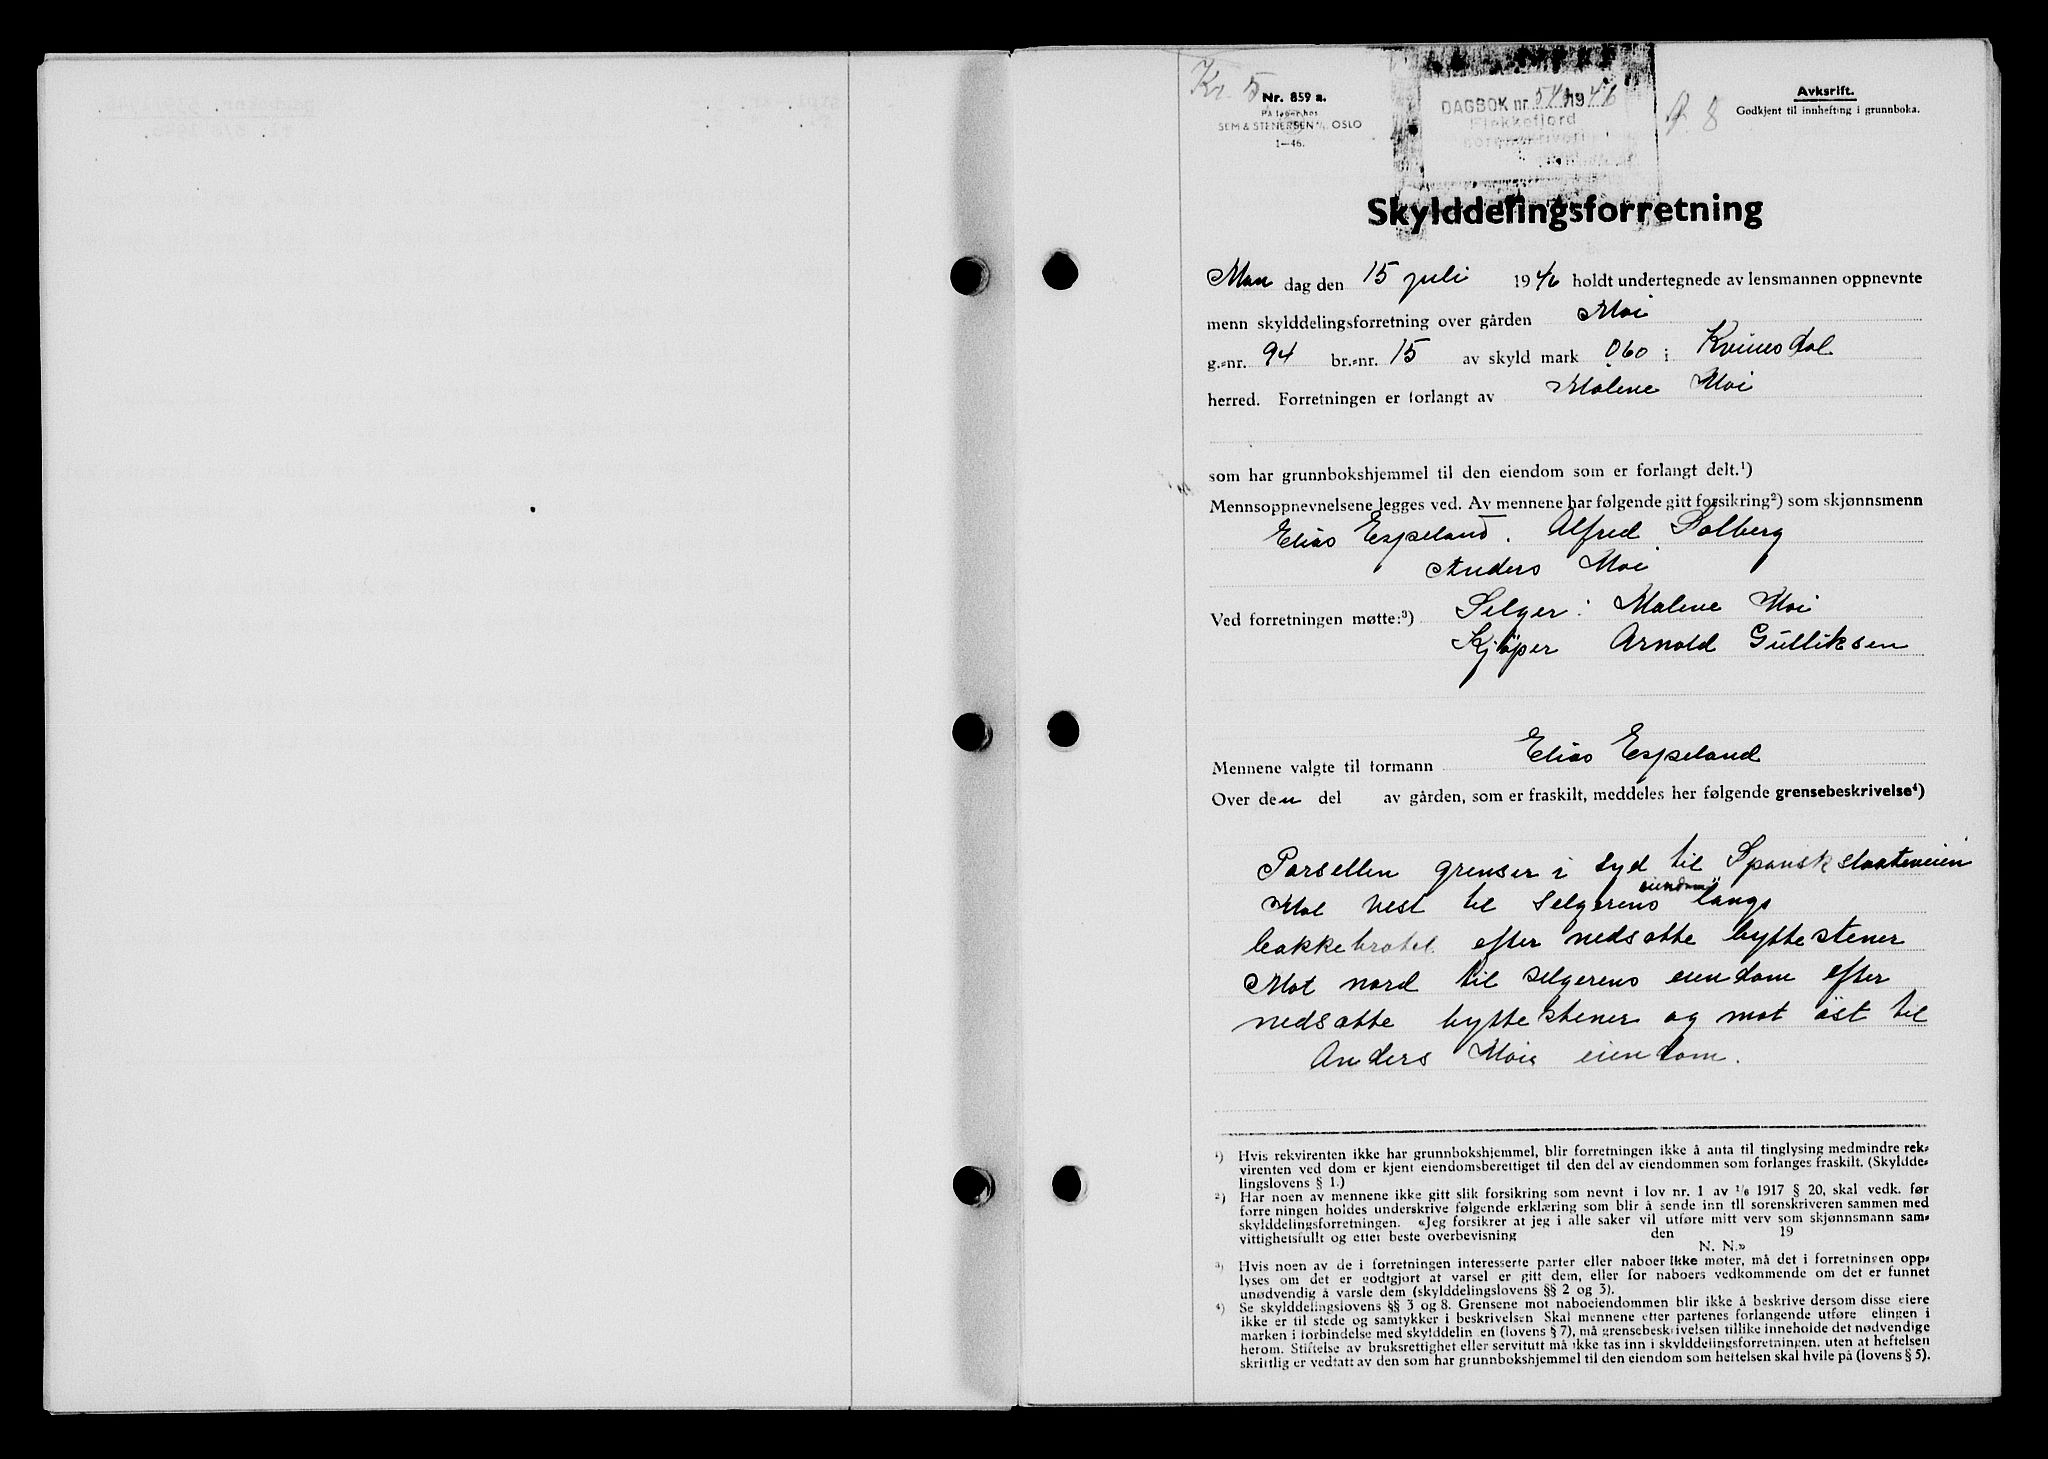 Kr. 5
Nr. 859 a.
På lager hos
SEM & STENERSEN A/S, OSLO
1—46.
DAGBOK nr. 1946
Flekkefjord
sorenskriveri
Avskrift.
Godkjent til innhefting i grunnboka.
Skylddelingsforretning
Man dag den 15 juli 1946 holdt undertegnede av lensmannen oppnevnte
menn skylddelingsforretning over gården Moi
g.-nr. 94 br.-nr. 15 av skyld mark 060 i Kvinesdal
herred. Forretningen er forlangt av Malene Moi
som har grunnbokshjemmel til den eiendom som er forlangt delt.¹)
Mennsoppnevnelsene legges ved. Av mennene har følgende gitt forsikring²) som skjønnsmenn
Elias Espeland. Alfred Solberg
Anders Moi
Ved forretningen møtte:³) Selger: Malene Moi
Kjöper Arnold Gulliksen
Mennene valgte til formann Elias Espeland
Over den del av gården, som er fraskilt, meddeles her følgende grensebeskrivelse⁴)
Parsellen grenser i syd til
Mot vest til Selgerens eiendom langs
bakkebratet efter nedsatte byttestener
Mot nord til selgerens eiendom efter
nedsatte byttestener og mot öst til
Anders Mois eiendom.
¹) Hvis rekvirenten ikke har grunnbokshjemmel, blir forretningen ikke å anta til tinglysing medmindre rek-
virenten ved dom er kjent eiendomsberettiget til den del av eiendommen som forlanges fraskilt. (Skyldde-
lingslovens § 1.)
²) Har noen av mennene ikke gitt slik forsikring som nevnt i lov nr. 1 av 1/6 1917 § 20, skal vedk. før
forretningen holdes underskrive følgende erklæring som blir å sende inn til sorenskriveren sammen med
skylddelingsforretningen. «Jeg forsikrer at jeg i alle saker vil utføre mitt verv som skjønnsmann sam-
vittighetsfullt og etter beste overbevisning den 19
N. N.»
³) Hvis noen av de i forretningen interesserte parter eller naboer ikke møter, må det i forretningen opp-
lyses om det er godtgjort at varsel er gitt dem, eller for naboers vedkommende om det er funnet
unødvendig å varsle dem (skylddelingslovens §§ 2 og 3).
⁴) Se skylddelingslovens §§ 3 og 8. Grensene mot naboeiendommen blir ikke å beskrive dersom disse eiere
ikke er til stede og samtykker i beskrivelsen Skal mennene etter partenes forlangende utføre elingen i
marken i forbindelse med skylddelin en (lovens § 7), må grensebeskrivelsen tillike inneholde det nødvendige
herom. Stiftelse av bruksrettighet eller servitutt må ikke tas inn i skylddelingsforretningen, uten at heftelsen
skriftlig er vedtatt av den som har grunnbokshjemmel til den eiendom som heftelsen skal hvile på (lovens § 5).